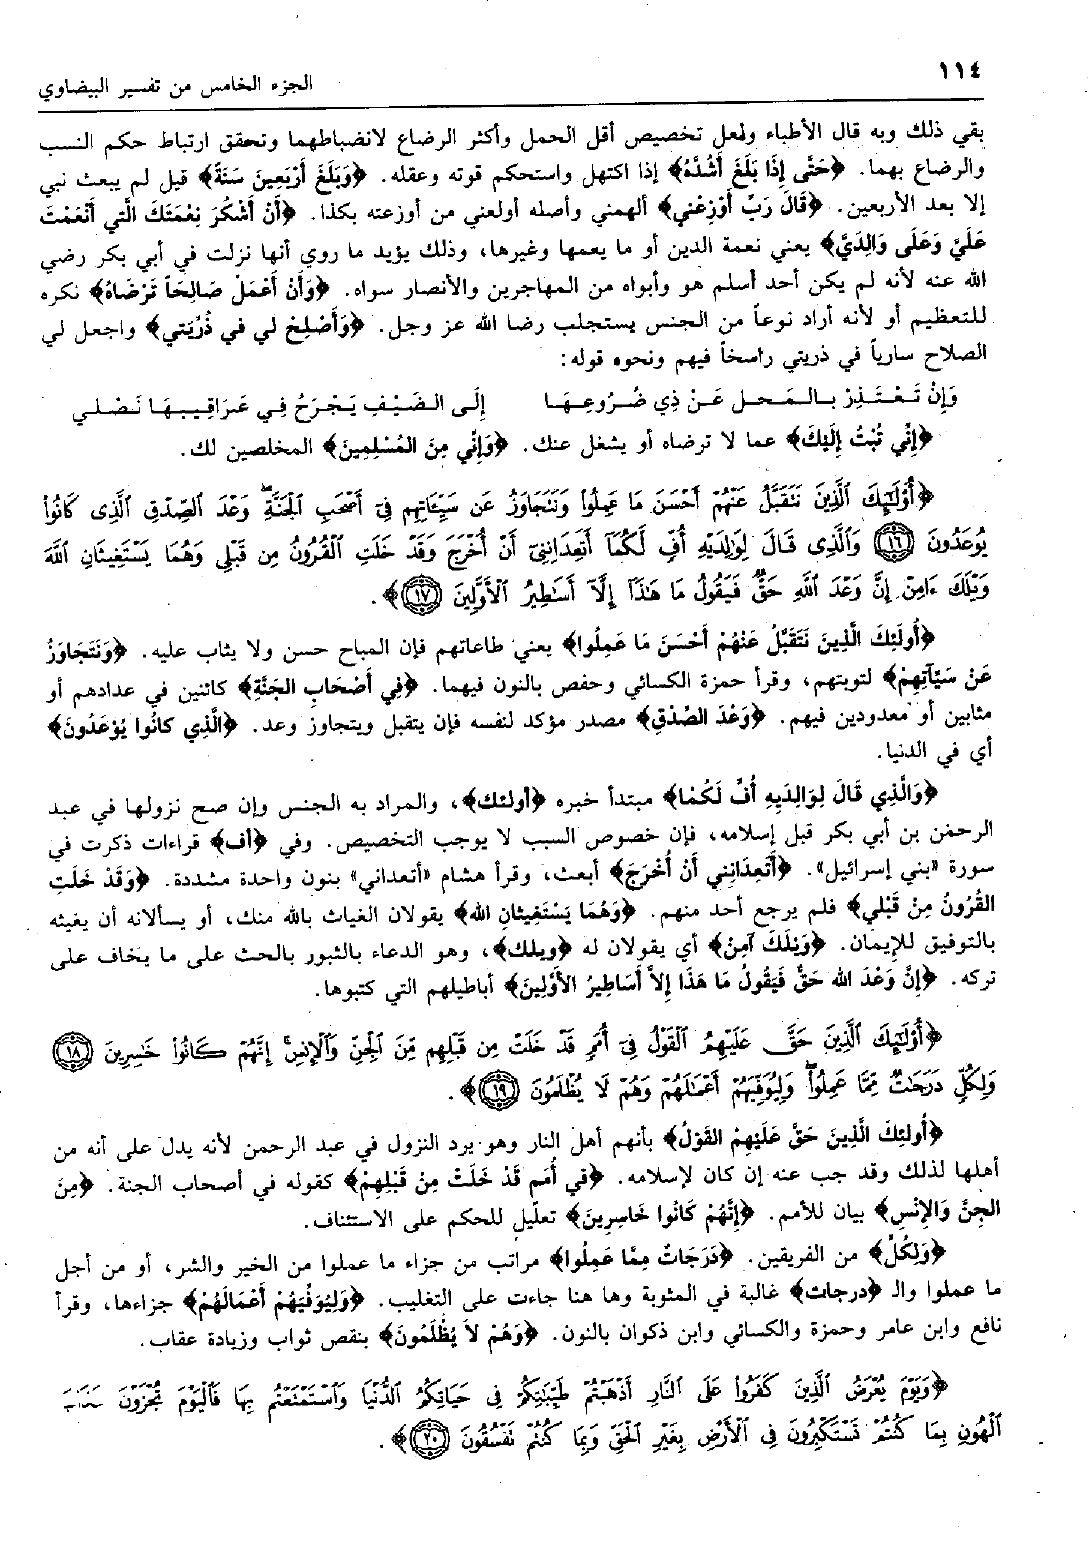 ١١٤
الجزء الخامس من تفسير البيضاوي
بقي ذلك وبه قال الأطباء ولعل تخصيص أقل الحمل وأكثر الرضاع لانضباطهما وتحقق ارتباط حكم النسب
والرضاع بهما. ﴿حَتَّى إِذَا بَلَغَ أَشُدَّهُ﴾ إذا اكتهل واستحكم قوته وعقله. ﴿وَبَلَغَ أَرْبَعِينَ سَنَةً﴾ قيل لم يبعث نبي
إلا بعد الأربعين. ﴿قَالَ رَبِّ أَوْزِعْنِي﴾ ألهمني وأصله أولعني من أوزعته بكذا. ﴿أَنْ أَشْكُرَ نِعْمَتَكَ الَّتِي أَنْعَمْتَ
عَلَيَّ وَعَلَى وَالِدَيَّ﴾ يعني نعمة الدين أو ما يعمها وغيرها، وذلك يؤيد ما روي أنها نزلت في أبي بكر رضي
الله عنه لأنه لم يكن أحد أسلم هو وأبواه من المهاجرين والأنصار سواه. ﴿وَأَنْ أَعْمَلَ صَالِحَاً تَرْضَاهُ﴾ نكره
للتعظيم أو لأنه أراد نوعاً من الجنس يستجلب رضا الله عز وجل. ﴿وَأَصْلِحْ لِي فِي ذُرِّيَتِي﴾ واجعل لي
الصلاح سارياً في ذريتي راسخاً فيهم ونحوه قوله:
وَإِنْ تَعْتَذِرْ بِالمَحلِ عَنْ ذِي ضُرُوعِهَا إِلَى الضَيْفِ يَجْرَحُ فِي عَرَاقِيبِهَا نَصْلي
﴿إِنِّي تُبْتُ إِلَيْكَ﴾ عما لا ترضاه أو يشغل عنك. ﴿وَإِنِّي مِنَ المُسْلِمِينَ﴾ المخلصين لك.
﴿أُوْلَٰٓئِكَ ٱلَّذِينَ نَتَقَبَّلُ عَنْهُمْ أَحْسَنَ مَا عَمِلُوا۟ وَنَتَجَاوَزُ عَن سَيِّـَٔاتِهِمْ فِىٓ أَصْحَٰبِ ٱلْجَنَّةِ ۖ وَعْدَ ٱلصِّدْقِ ٱلَّذِى كَانُوا۟
يُوعَدُونَ ١٦ وَٱلَّذِى قَالَ لِوَٰلِدَيْهِ أُفٍّ لَّكُمَآ أَتَعِدَانِنِىٓ أَنْ أُخْرَجَ وَقَدْ خَلَتِ ٱلْقُرُونُ مِن قَبْلِى وَهُمَا يَسْتَغِيثَانِ ٱللَّهَ
وَيْلَكَ ءَامِنْ إِنَّ وَعْدَ ٱللَّهِ حَقٌّ فَيَقُولُ مَا هَٰذَآ إِلَّآ أَسَٰطِيرُ ٱلْأَوَّلِينَ ١٧﴾.
﴿أُولَئِكَ الَّذِينَ نَتَقَبَّلُ عَنْهُمْ أَحْسَنَ مَا عَمِلُوا﴾ يعني طاعاتهم فإن المباح حسن ولا يثاب عليه. ﴿وَنَتَجَاوَزُ
عَنْ سَيِّآتِهِمْ﴾ لتوبتهم، وقرأ حمزة الكسائي وحفص بالنون فيهما. ﴿فِي أَصْحَابِ الجَنَّةِ﴾ كائنين في عدادهم أو
مثابين أو معدودين فيهم. ﴿وَعْدَ الصِّدْقِ﴾ مصدر مؤكد لنفسه فإن يتقبل ويتجاوز وعد. ﴿الَّذِي كَانُوا يُوْعَدُونَ﴾
أي في الدنيا.
﴿وَالَّذِي قَالَ لِوَالِدَيِهِ أُفٍّ لَكُمَا﴾ مبتدأ خبره ﴿أولئك﴾، والمراد به الجنس وإن صح نزولها في عبد
الرحمٰن بن أبي بكر قبل إسلامه، فإن خصوص السبب لا يوجب التخصيص. وفي ﴿أف﴾ قراءات ذكرت في
سورة «بني إسرائيل». ﴿أَتَعِدَانِنِي أَنْ أُخْرَجَ﴾ أبعث، وقرأ هشام «أتعداني» بنون واحدة مشددة. ﴿وَقَدْ خَلَتِ
القُرُونُ مِنْ قَبْلِي﴾ فلم يرجع أحد منهم. ﴿وَهُمَا يَسْتَغِيثانِ الله﴾ يقولان الغياث بالله منك، أو يسألانه أن يغيثه
بالتوفيق للإيمان. ﴿وَيْلَكَ آمِنْ﴾ أي يقولان له ﴿ويلك﴾، وهو الدعاء بالثبور بالحث على ما يخاف على
تركه. ﴿إِنَّ وَعْدَ الله حَقٌّ فَيَقُولُ مَا هَذَا إِلاَّ أَسَاطِيرُ الأَوَّلِينَ﴾ أباطيلهم التي كتبوها.
﴿أُوْلَٰٓئِكَ ٱلَّذِينَ حَقَّ عَلَيْهِمُ ٱلْقَوْلُ فِىٓ أُمَمٍ قَدْ خَلَتْ مِن قَبْلِهِم مِّنَ ٱلْجِنِّ وَٱلْإِنسِ ۖ إِنَّهُمْ كَانُوا۟ خَٰسِرِينَ ١٨
وَلِكُلٍّ دَرَجَٰتٌ مِّمَّا عَمِلُوا۟ ۖ وَلِيُوَفِّيَهُمْ أَعْمَٰلَهُمْ وَهُمْ لَا يُظْلَمُونَ ١٩﴾.
﴿أُولئِكَ الَّذِينَ حَقَّ عَلَيْهِمْ القَوْلُ﴾ بأنهم أهل النار وهو يرد النزول في عبد الرحمن لأنه يدل على أنه من
أهلها لذلك وقد جب عنه إن كان لإسلامه. ﴿فِي أُمَمٍ قَدْ خَلَتْ مِنْ قَبْلِهِمْ﴾ كقوله في أصحاب الجنة. ﴿مِنَ
الجِنِّ وَالإِنْسِ﴾ بيان للأمم. ﴿إِنَّهُمْ كَانُوا خَاسِرِينَ﴾ تعليل للحكم على الاستئناف.
﴿وَلِكُلٍّ﴾ من الفريقين. ﴿دَرَجَاتٌ مِمَّا عَمِلُوا﴾ مراتب من جزاء ما عملوا من الخير والشر، أو من أجل
ما عملوا والـ ﴿درجات﴾ غالبة في المثوبة وها هنا جاءت على التغليب. ﴿وَلِيُوَفِّيَهُمْ أَعْمَالَهُمْ﴾ جزاءها، وقرأ
نافع وابن عامر وحمزة والكسائي وابن ذكوان بالنون. ﴿وَهُمْ لاَ يُظْلَمُونَ﴾ بنقص ثواب وزيادة عقاب.
﴿وَيَوْمَ يُعْرَضُ ٱلَّذِينَ كَفَرُوا۟ عَلَى ٱلنَّارِ أَذْهَبْتُمْ طَيِّبَٰتِكُمْ فِى حَيَاتِكُمُ ٱلدُّنْيَا وَٱسْتَمْتَعْتُم بِهَا فَٱلْيَوْمَ تُجْزَوْنَ عَذَابَ
ٱلْهُونِ بِمَا كُنتُمْ تَسْتَكْبِرُونَ فِى ٱلْأَرْضِ بِغَيْرِ ٱلْحَقِّ وَبِمَا كُنتُمْ نَفْسُقُونَ ٢٠﴾.